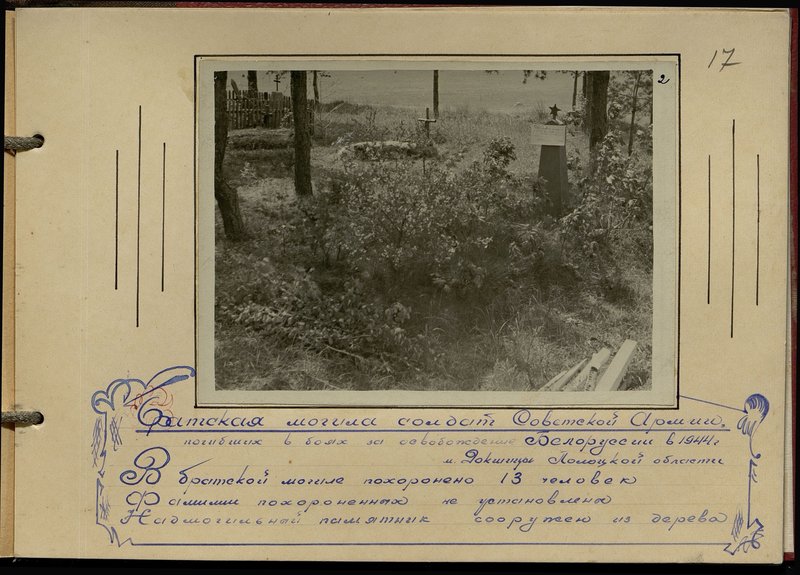 17
2
Братская могила солдат Советской Армии,
погибших в боях за освобождение Белоруссии в 1944 г
м. Докшицы Полоцкой области
В братской могиле похоронено 13 человек
Фамилии похороненных не установлены
Надмогильный памятник сооружен из дерева